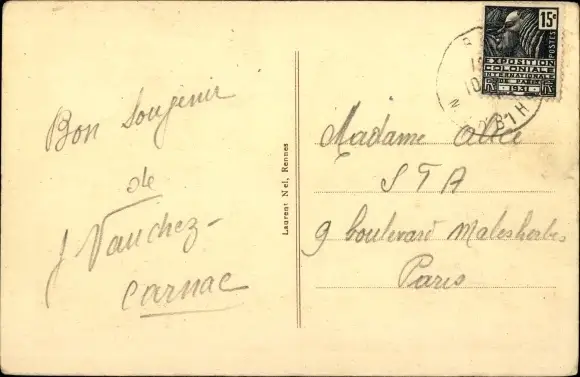 Bon Souvenir
de
J Vauchez-
Carnac
Laurent Nel, Rennes
15c
POSTES
EXPOSITION
COLONIALE
INTERNATIONALE
DE PARIS
1931
Madame Alice
STA
9 boulevard Malesherbes
Paris